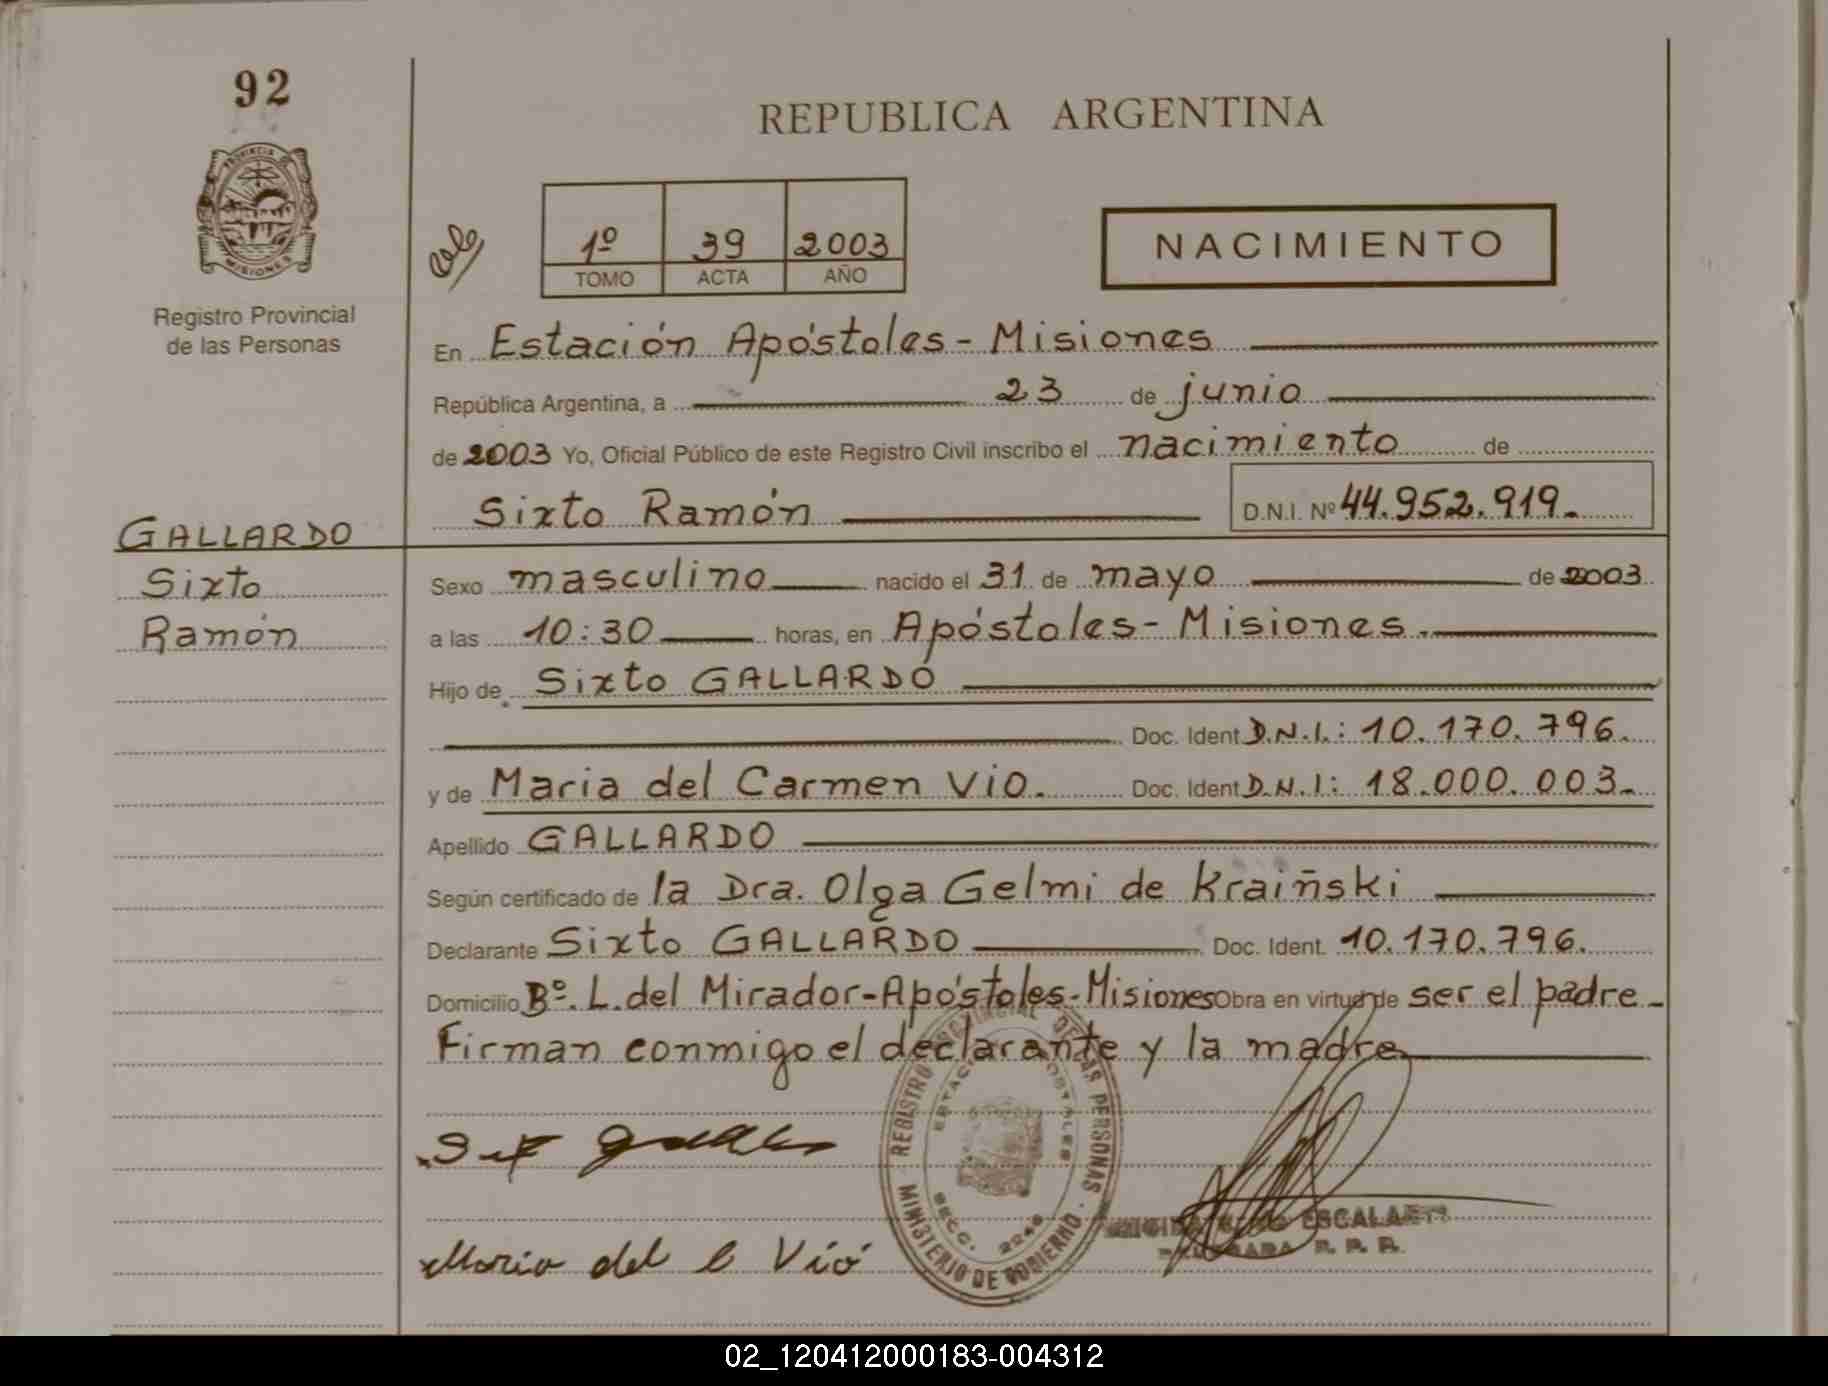 92
REPUBLICA ARGENTINA
PROVINCIA DE
MISIONES
Registro Provincial
de las Personas
1º 39 2003
TOMO ACTA AÑO
NACIMIENTO
En Estación Apóstoles - Misiones
República Argentina, a 23 de junio
de 2003 Yo, Oficial Público de este Registro Civil inscribo el nacimiento de
Sixto Ramón D.N.I. Nº 44.952.919.-
GALLARDO
Sixto
Ramón
Sexo masculino nacido el 31 de mayo de 2003
a las 10:30 horas, en Apóstoles - Misiones.
Hijo de Sixto GALLARDO
Doc. Ident D.N.I.: 10.170.796.
y de Maria del Carmen Vio. Doc. Ident D.N.I: 18.000.003.-
Apellido GALLARDO
Según certificado de la Dra. Olga Gelmi de Kraiñski
Declarante Sixto GALLARDO Doc. Ident. 10.170.796.
Domicilio Bº. L. del Mirador - Apóstoles - Misiones Obra en virtud de ser el padre -
Firman conmigo el declarante y la madre
REGISTRO PROVINCIAL DE LAS PERSONAS
MINISTERIO DE GOBIERNO
SECC. 2246
Maria del C Vió
ESCALANTE
R. P. P.
02_120412000183-004312